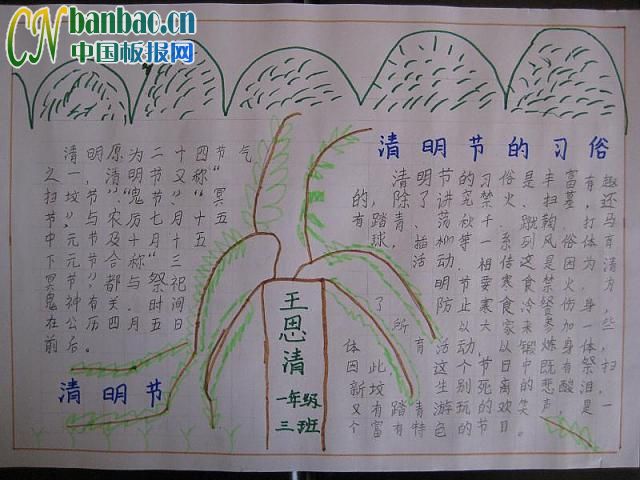 清明节的习俗
清明原为二十四节气
之一,清明节又称“
扫坟节”、“鬼节”、“冥
节”,与农历七月十五
中元节及十月十五
下元节合称“三
冥节”,都与祭祀
鬼神有关。时间
在公历四月五日
前后。
清明节
王恩清
一年级
三班
清明节的习俗是丰富有趣
的,除了讲究禁火、扫墓,还
有踏青、荡秋千、蹴鞠、打马
球、插柳等一系列风俗体
育活动。相传这是因为清
明节要寒食禁火,为
了防止寒食冷餐伤身,
所以大家来参加一些
体育活动,以锻炼身体。
因此,这个节日中既有祭扫
新坟生别死离的悲酸泪,
又有踏青游玩的欢笑声,是一
个富有特色的节日。
CN banbao.cn
中国板报网